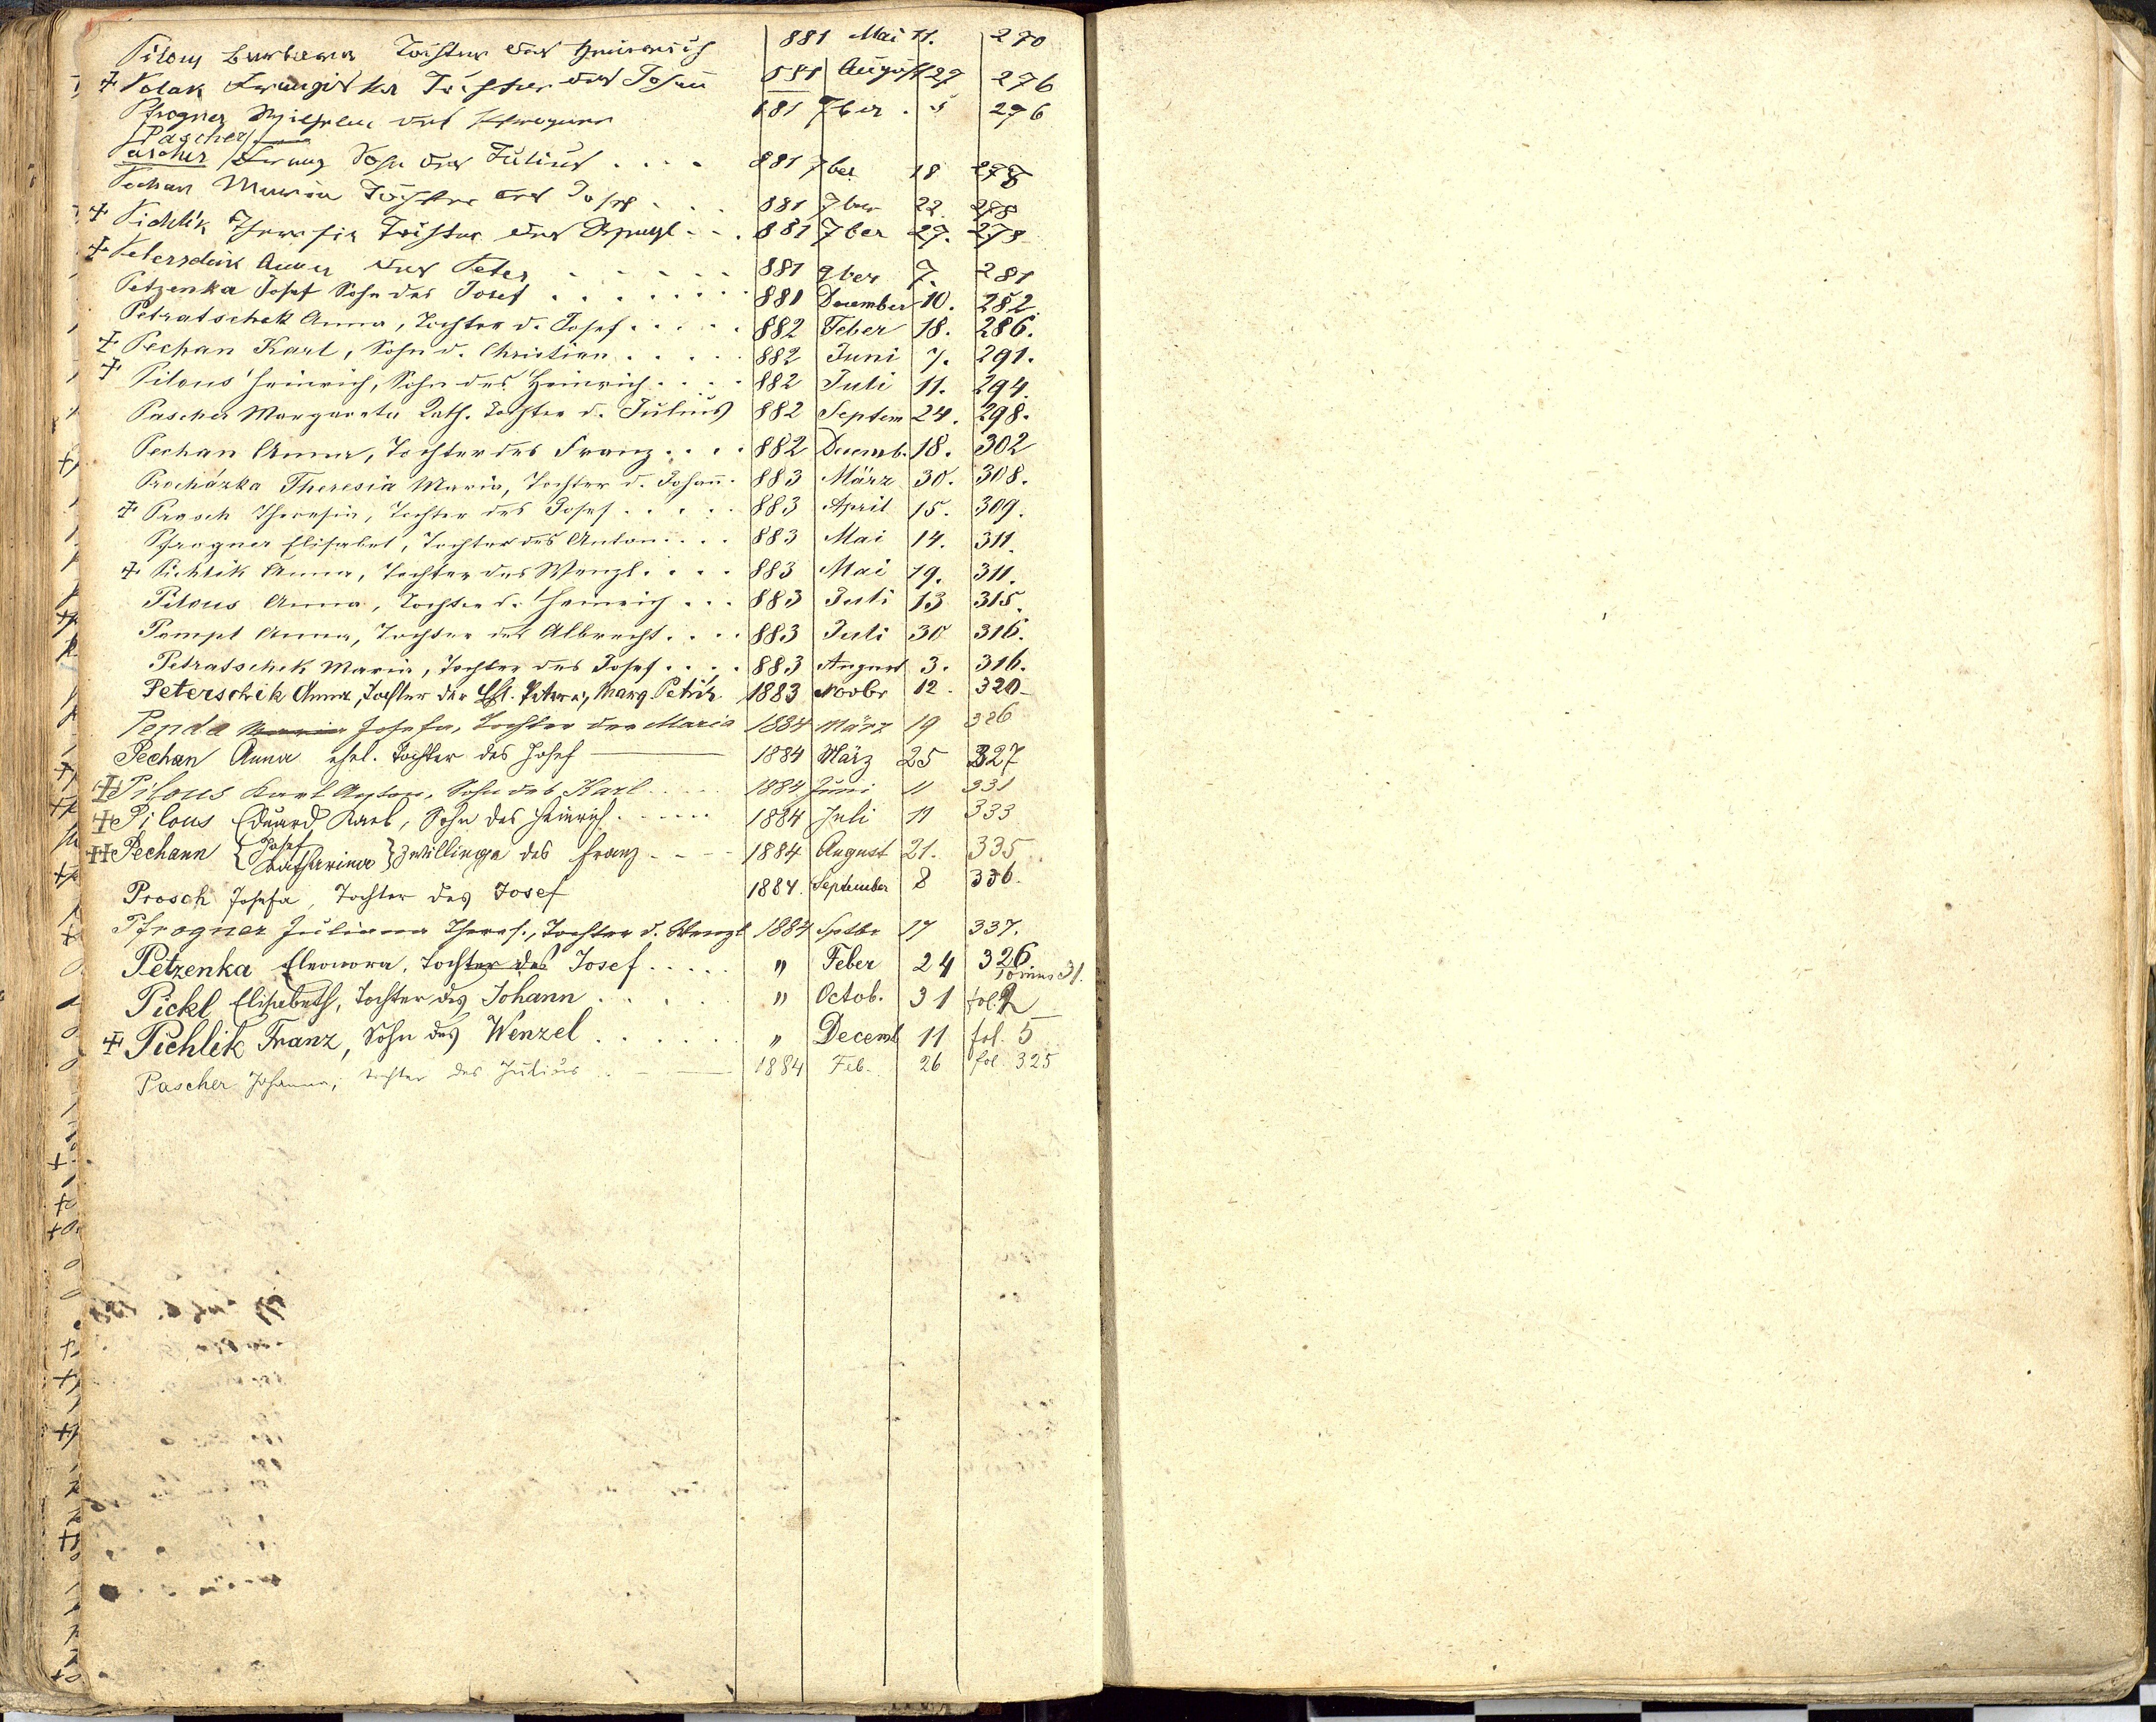 Pilous Barbara Tochter des Heinrich 881 Mai 11. 270
+ Polak Franziska Tochter des Johann 881 August 27 276
Pfrogner Wilhelm des 881 7ber . 5 276
[Pascher]
Pascher Franz Sohn des Julius . . . . 881 7ber 18 278
Pechan Maria Tochter des Josef . . . 881 7ber 22. 278
+ Pichlik Theresia Tochter des Wenzl . . . 881 7ber 27. 278
+ Peterschik Anna des Peter . . . . . . 881 9ber 7. 281
Petzenka Josef Sohn des Josef . . . . . . . 881 December 10. 282.
Petratschek Anna, Tochter d. Josef . . . . . 882 Feber 18. 286.
+ Pechan Karl, Sohn d. Christian . . . . . 882 Juni 7. 291.
+ Pilous Heinrich, Sohn des Heinrich . . . . 882 Juli 11. 294.
Pascher Margareta Kath. Tochter d. Julius 882 Septem 24. 298.
Pechan Anna, Tochter des Franz . . . . 882 Decemb. 18. 302
Procházka Theresia Maria, Tochter d. Johann. 883 März 30. 308.
+ Prosch Theresia, Tochter des Josef . . . . . 883 April 15. 309.
Pfrogner Elisabet, Tochter des Anton . . . . 883 Mai 14. 311.
+ Pichlik Anna, Tochter des Wenzl . . . . 883 Mai 19. 311.
Pilous Anna, Tochter d. Heinrich . . . 883 Juli 13 315.
Pompt Anna, Tochter des Albrecht . . . . 883 Juli 30 316.
Petratschek Maria, Tochter des Josef . . . . 883 August 3. 316.
Peterschik Anna, Tochter der Marg. Petrik. 1883 Novbr 12. 320
Penda Maria Josefa, Tochter der Maria 1884 März 19 326
Pechan Anna ehel. Tochter des Josef 1884 März 25 327
+ Pilous Karl Anton, Sohn des Karl . . . . . 1884 Juni 11 331
+ Pilous Eduard Karl, Sohn des Heinrich . . . . . . 1884 Juli 11 333
++ Pechann { Josef Katharina } Zwillinge des Franz . . . 1884 August 21. 335
Prosch Josefa, Tochter des Josef 1884. September 8 336.
Pfrogner Juliana Theres., Tochter d. Wenzl 1884 Septbr 17 337.
Petzenka Eleonora, Tochter des Josef . . . . . " Feber 24 326
Pickl Elisabeth, Tochter des Johann . . . . . " Octob. 31 fol. 2
+ Pichlik Franz, Sohn des Wenzel . . . . . . . " Decemb 11 fol. 5
Pascher Johanna, Tochter des Julius 1884 Feb. 26 fol. 325